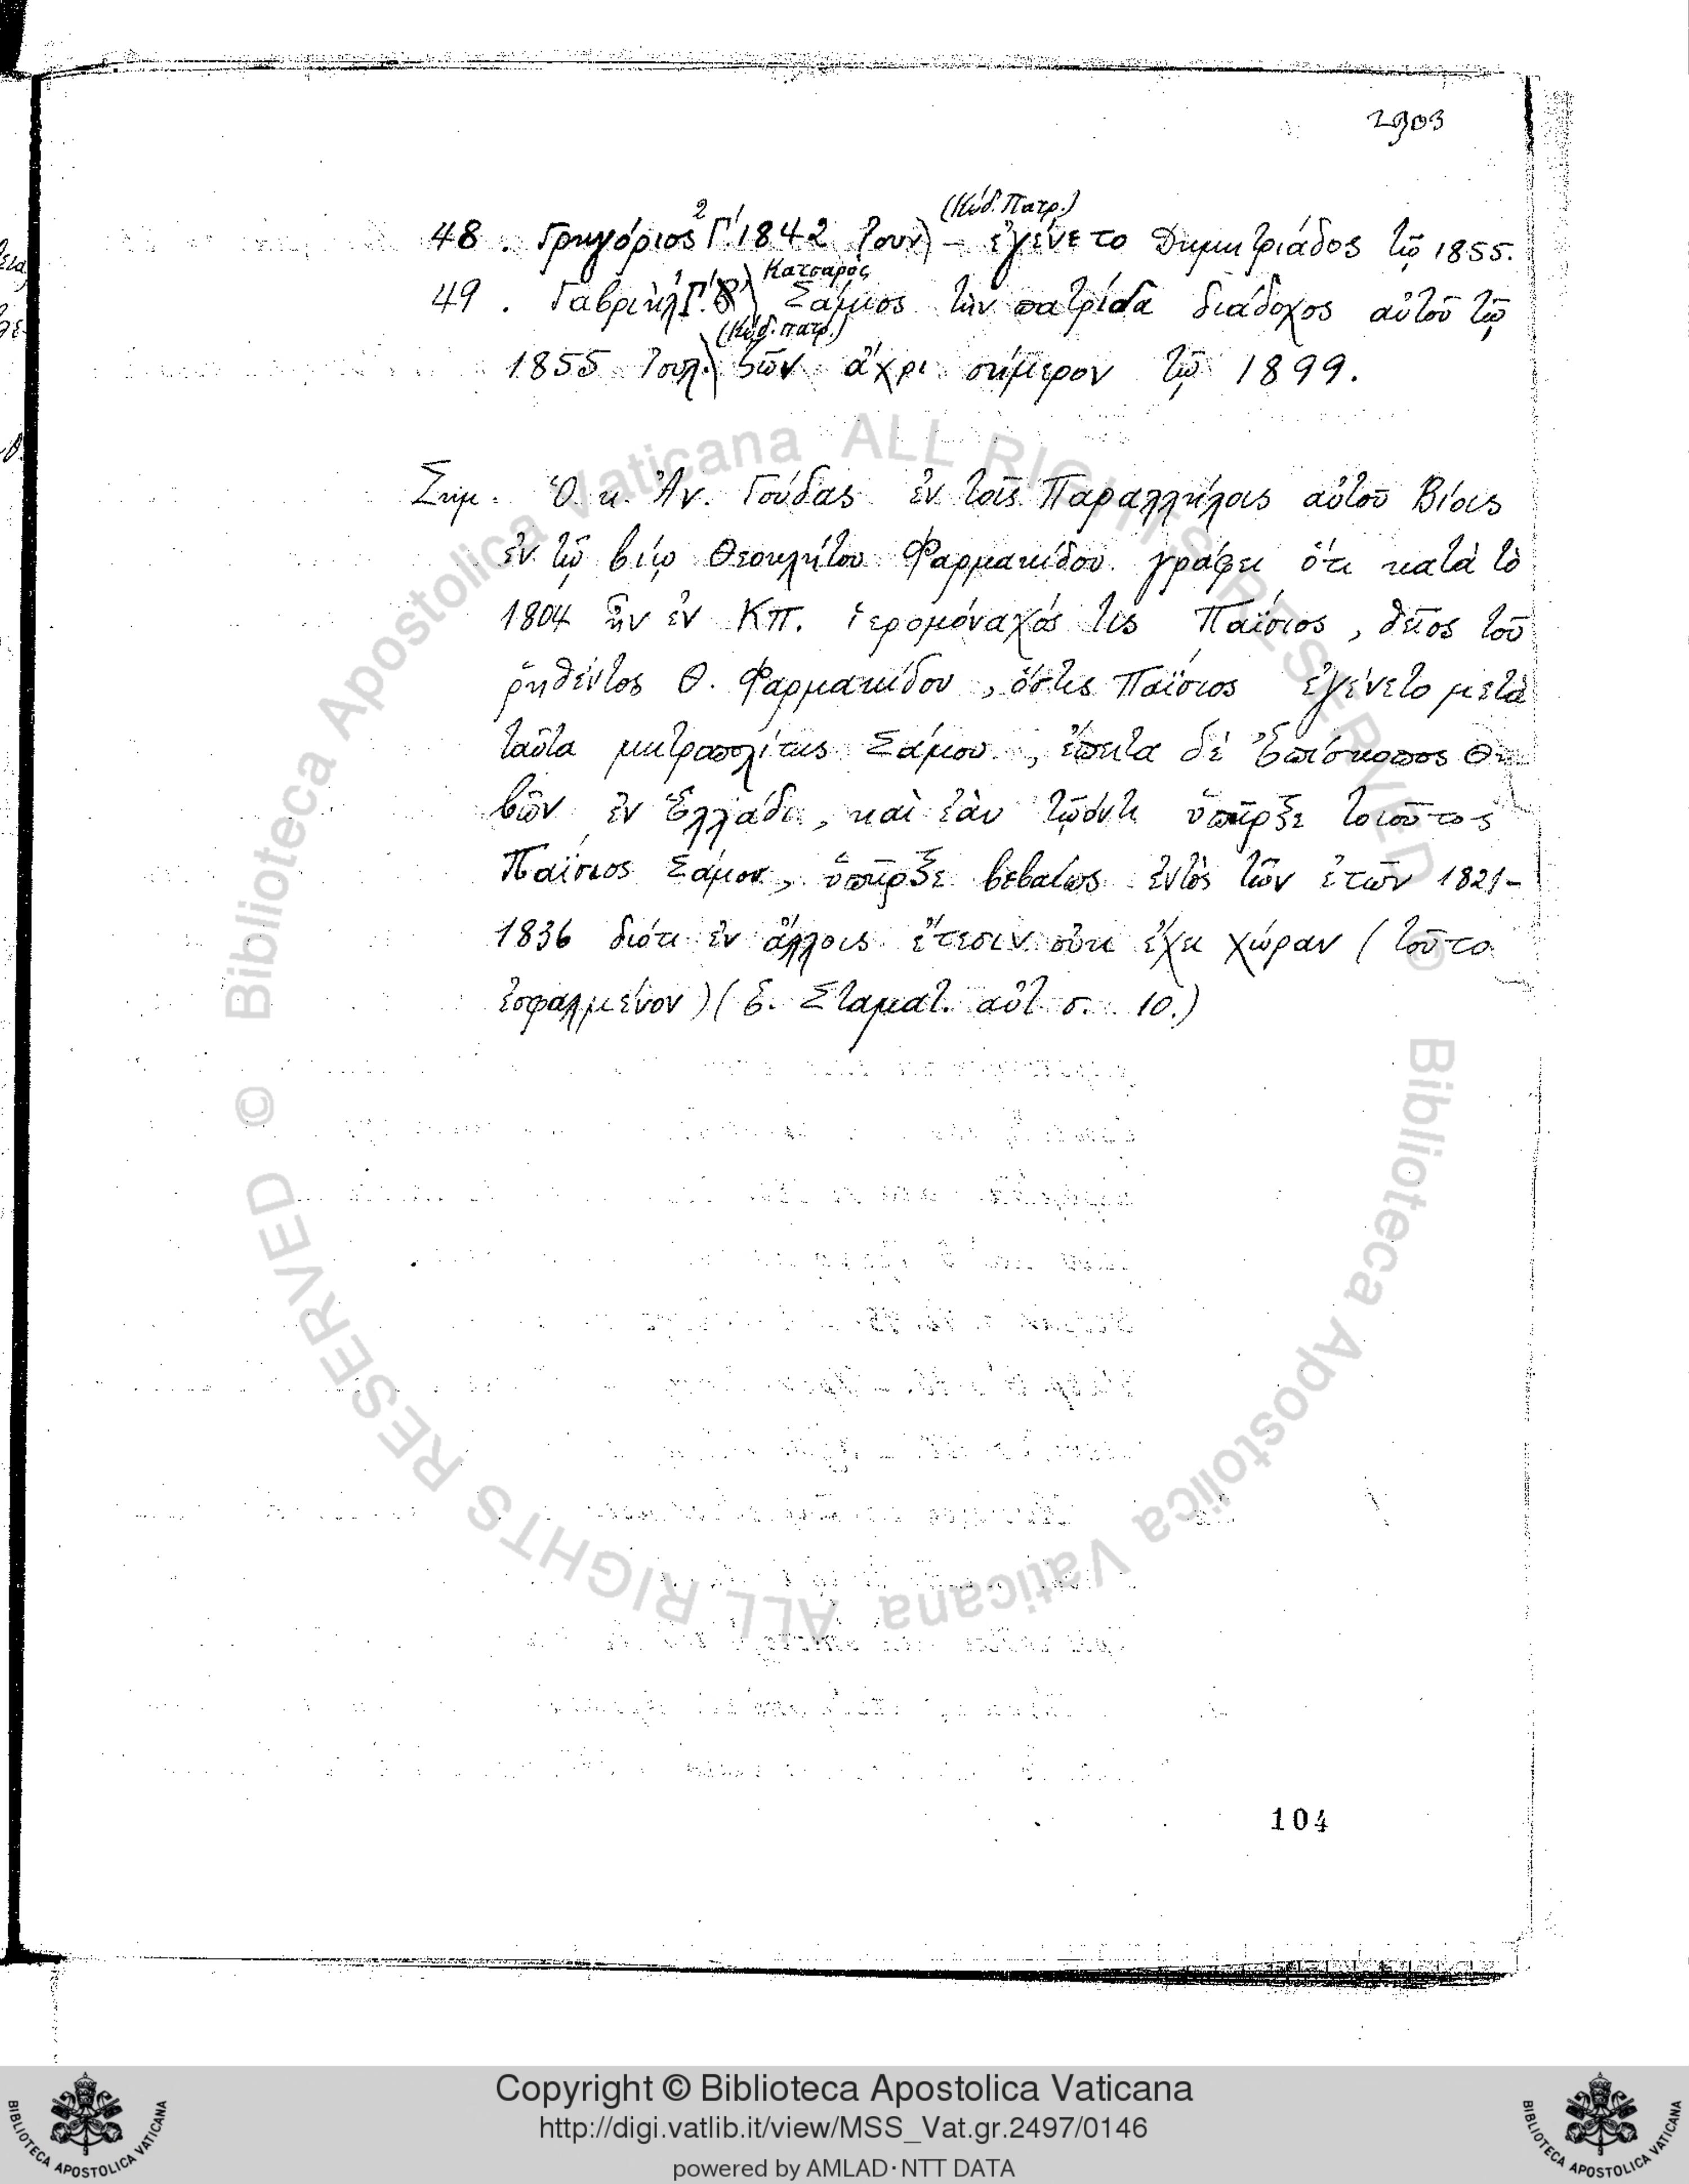 2903
(Κώδ. Πατρ.)
48. Γρηγόριος Γ' 1842 Ἰουν) – ἐγένετο Δημητριάδος τῷ 1855.
Κατσαρός
49. Γαβριήλ Γ'. Σάμιος τὴν πατρίδα διάδοχος αὐτοῦ τῷ
(Κώδ. πατρ.)
1855 Ἰουλ.) ζῶν ἄχρι σήμερον τῷ 1899.
Σημ. Ὁ κ. Ἀν. Γούδας ἐν τοῖς Παραλλήλοις αὐτοῦ Βίοις
ἐν τῷ βίῳ Θεοκλήτου Φαρμακίδου γράφει ὅτι κατὰ τὸ
1804 ἦν ἐν Κπ. ἱερομόναχός τις Παΐσιος, θεῖος τοῦ
ῥηθέντος Θ. Φαρμακίδου, ὅστις Παΐσιος ἐγένετο μετὰ
ταῦτα μητροπολίτης Σάμου, ἔπειτα δὲ Ἐπίσκοπος Θη
βῶν ἐν Ἑλλάδι, καὶ ἐὰν τῷόντι ὑπῆρξε τοιοῦτος
Παΐσιος Σάμου, ὑπῆρξε βεβαίως ἐντὸς τῶν ἐτῶν 1821-
1836 διότι ἐν ἄλλοις ἔτεσιν οὐκ ἔχει χώραν (τοῦτο
ἐσφαλμένον) (Ἐ. Σταματ. αὐτ. σ. 10.)
104
© Biblioteca Apostolica Vaticana ALL RIGHTS RESERVED
© Biblioteca Apostolica Vaticana ALL RIGHTS RESERVED
Copyright © Biblioteca Apostolica Vaticana
http://digi.vatlib.it/view/MSS_Vat.gr.2497/0146
powered by AMLAD·NTT DATA
BIBLIOTECA APOSTOLICA VATICANA
BIBLIOTECA APOSTOLICA VATICANA